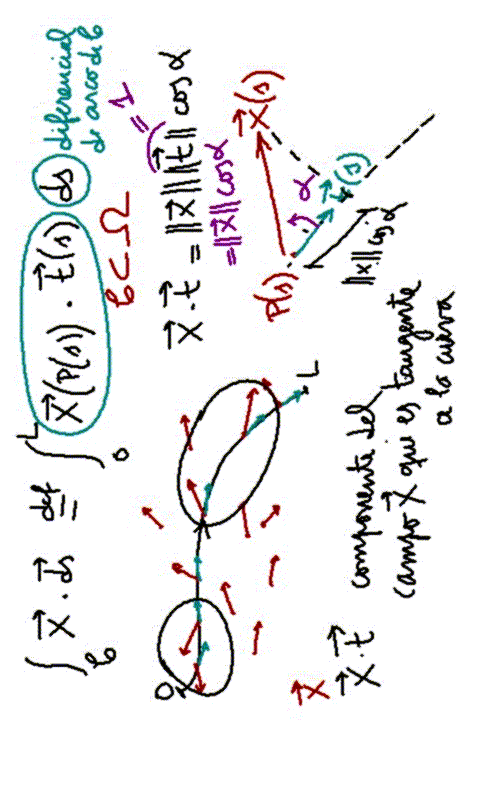 ∫_𝒞 X⃗ · d⃗s ≝ ∫_0^L X⃗(P(s)) · t⃗(s) ds
diferencial
de arco de 𝒞
𝒞 ⊂ Ω
X⃗ · t⃗ = ‖X⃗‖ ‖t⃗‖ cos α
= 1
= ‖X⃗‖ cos α
0
L
P(s)
X⃗(s)
α
t⃗(s)
‖X‖ cos α
X⃗
X⃗ · t⃗
componente del
campo X⃗ que es tangente
a la curva